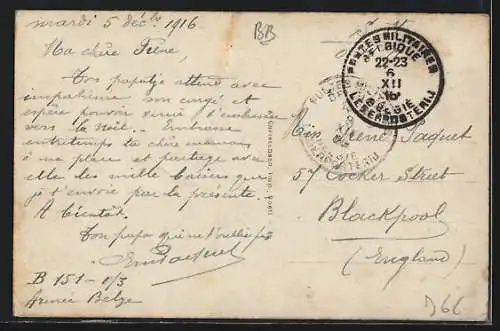 mardi 5 déc. 1916
BB
Ma chère Irène,
Ton papatje attend avec
impatience son congé et
espère pouvoir venir t'embrasser
vers la Noël. Embrasse
entretemps ta chère maman
à ma place et partage avec
elle les mille baisers que
je t'envoie par la présente.
A bientôt.
Ton papa qui ne t'oublie pas
B 151 - 1/3
Armée Belge
POSTES MILITAIRES
BELGIQUE
22-23
6
XII
16
BELGIE
LEGERPOSTERIJ
Miss Irene Paquet
57 Cocker Street
Blackpool
(England)
D66